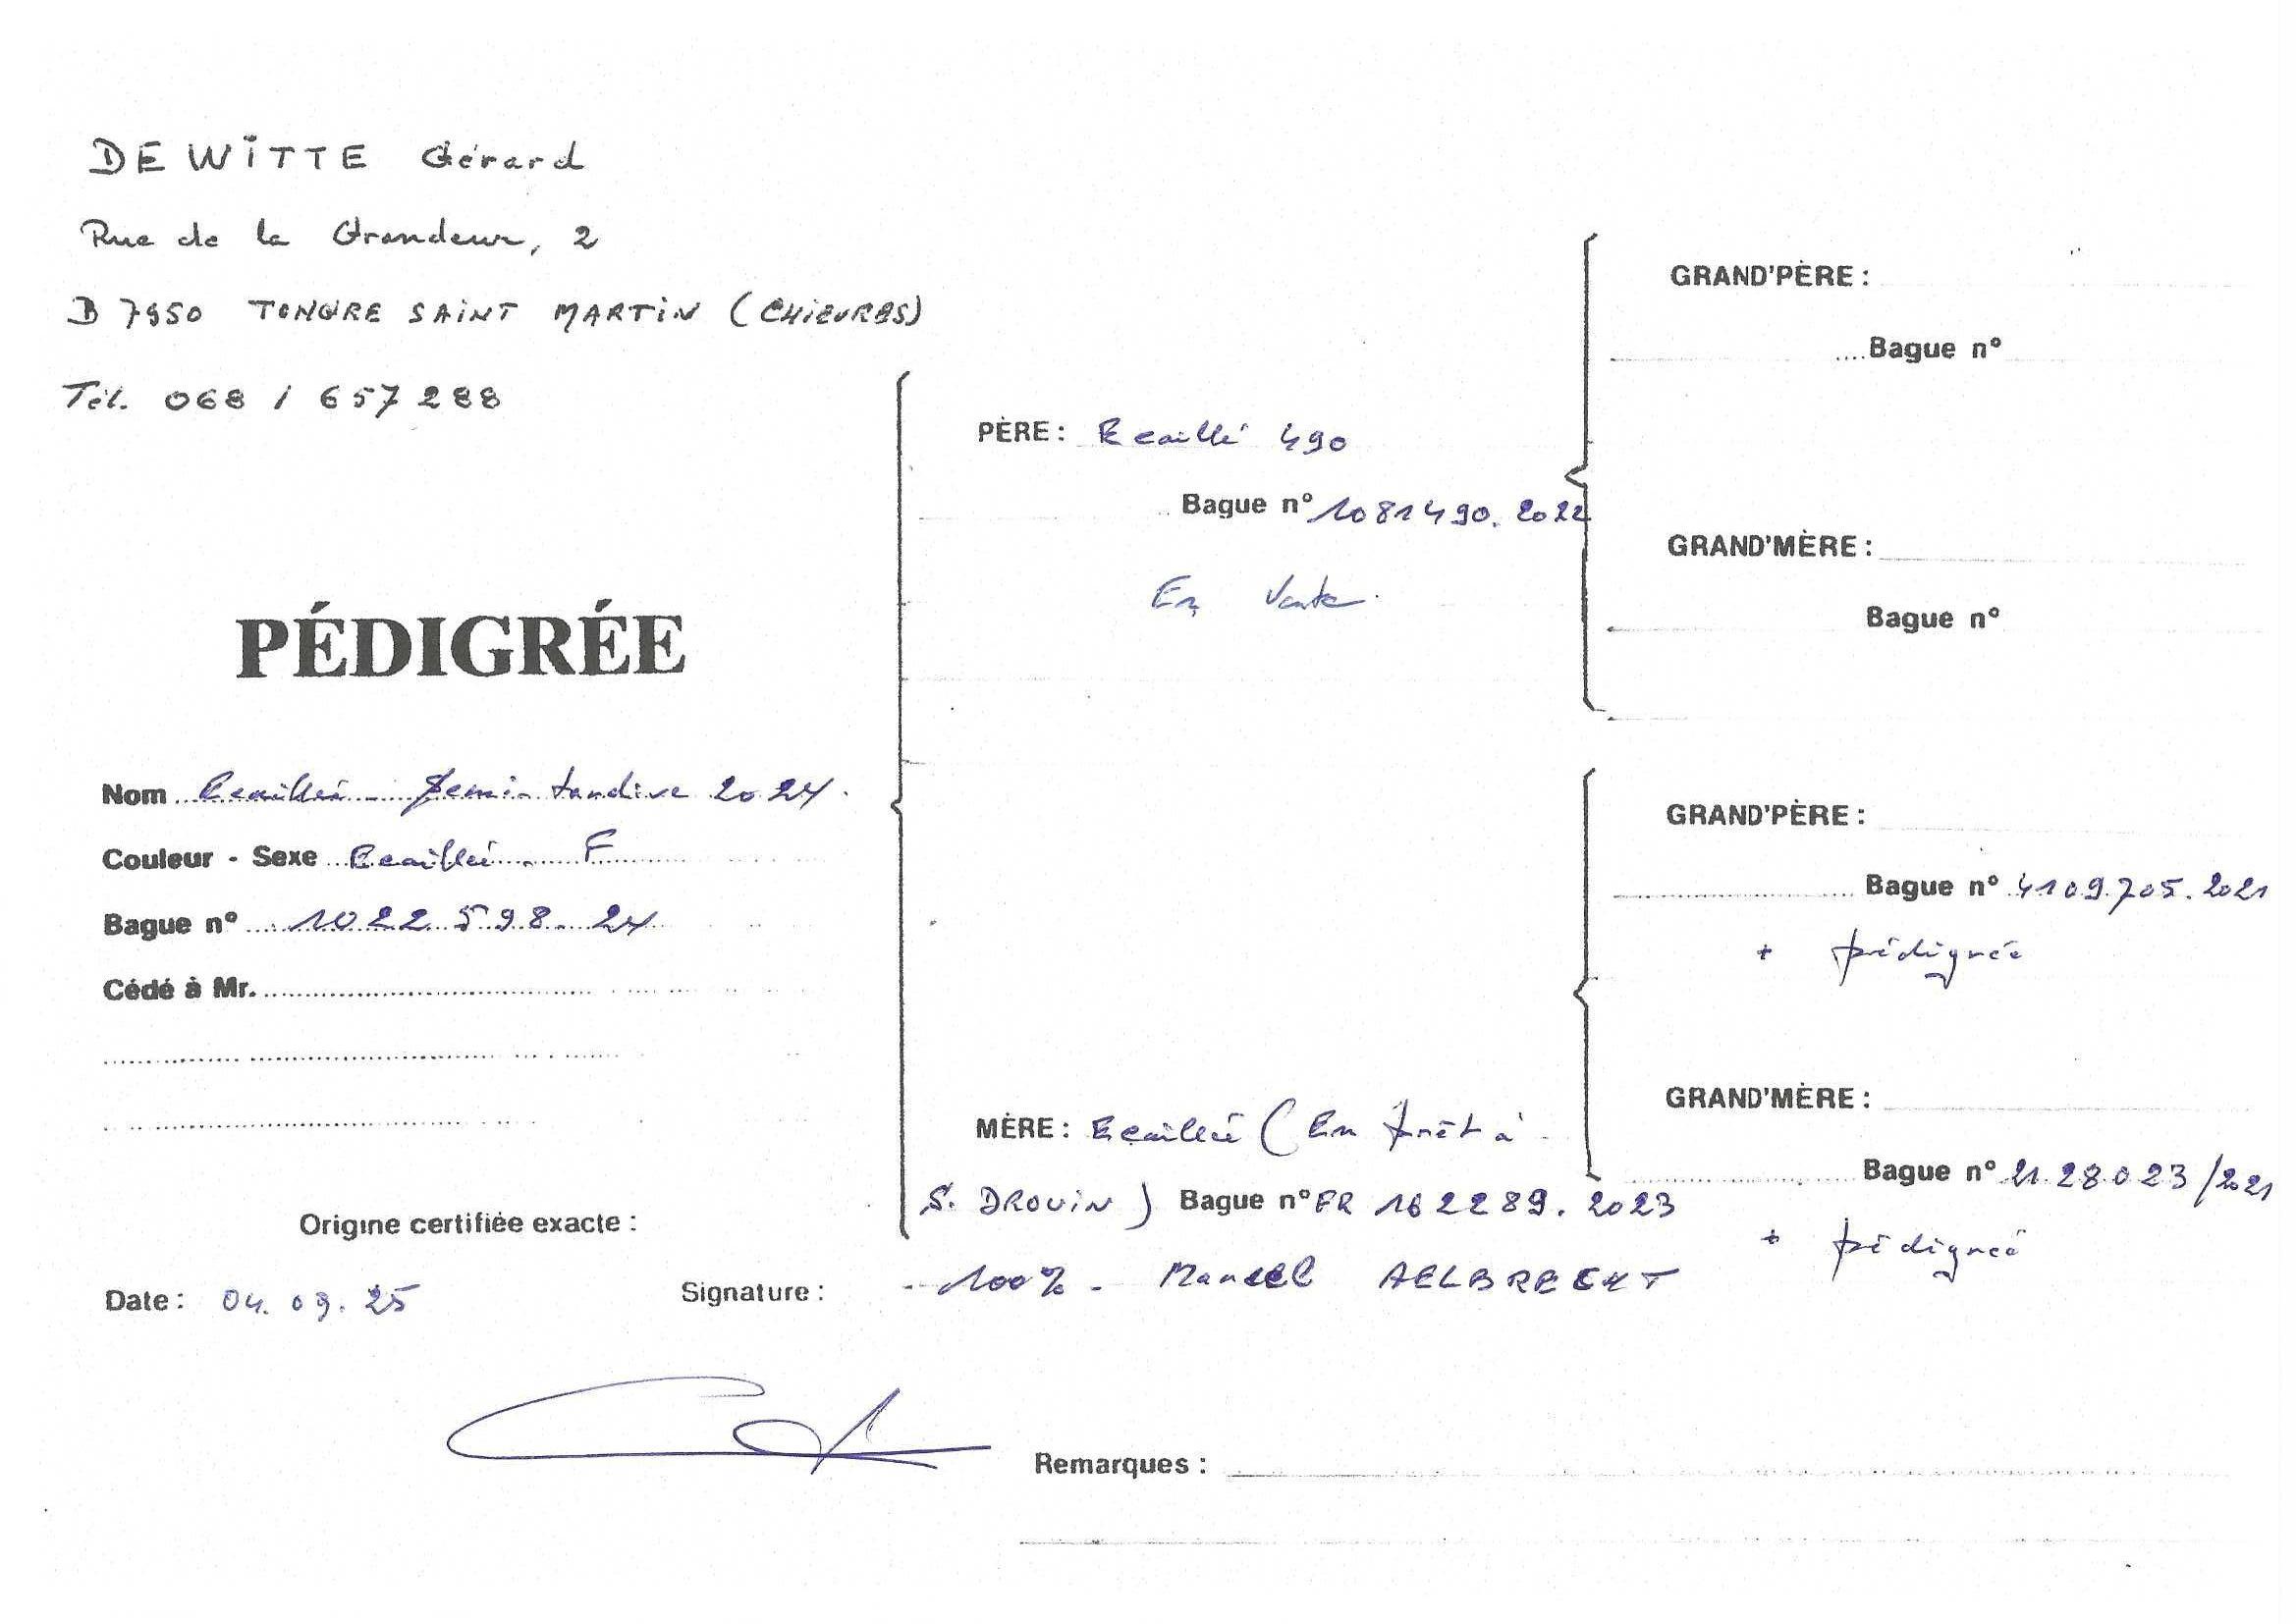 DE WITTE Gérard
Rue de la Grandeur, 2
B 7950 TONGRE SAINT MARTIN (CHIEVRES)
Tél. 068 / 657 288
PÉDIGRÉE
Nom Ecaillée - Semi-tardive 2024.
Couleur - Sexe Ecaillée - F
Bague n° 1022598-24
Cédé à Mr.
Origine certifiée exacte :
Date : 04.09.25
Signature :
PÈRE : Ecaillé 490
Bague n° 1081490.2022
En Vente.
MÈRE : Ecaillée (En prêt à
S. DROUIN) Bague n° FR 162289.2023
100% - Marcel AELBRECHT
GRAND'PÈRE :
Bague n°
GRAND'MÈRE :
Bague n°
GRAND'PÈRE :
Bague n° 4109.705.2021
+ pédigrée
GRAND'MÈRE :
Bague n° 2128023/2021
+ pédigrée
Remarques :